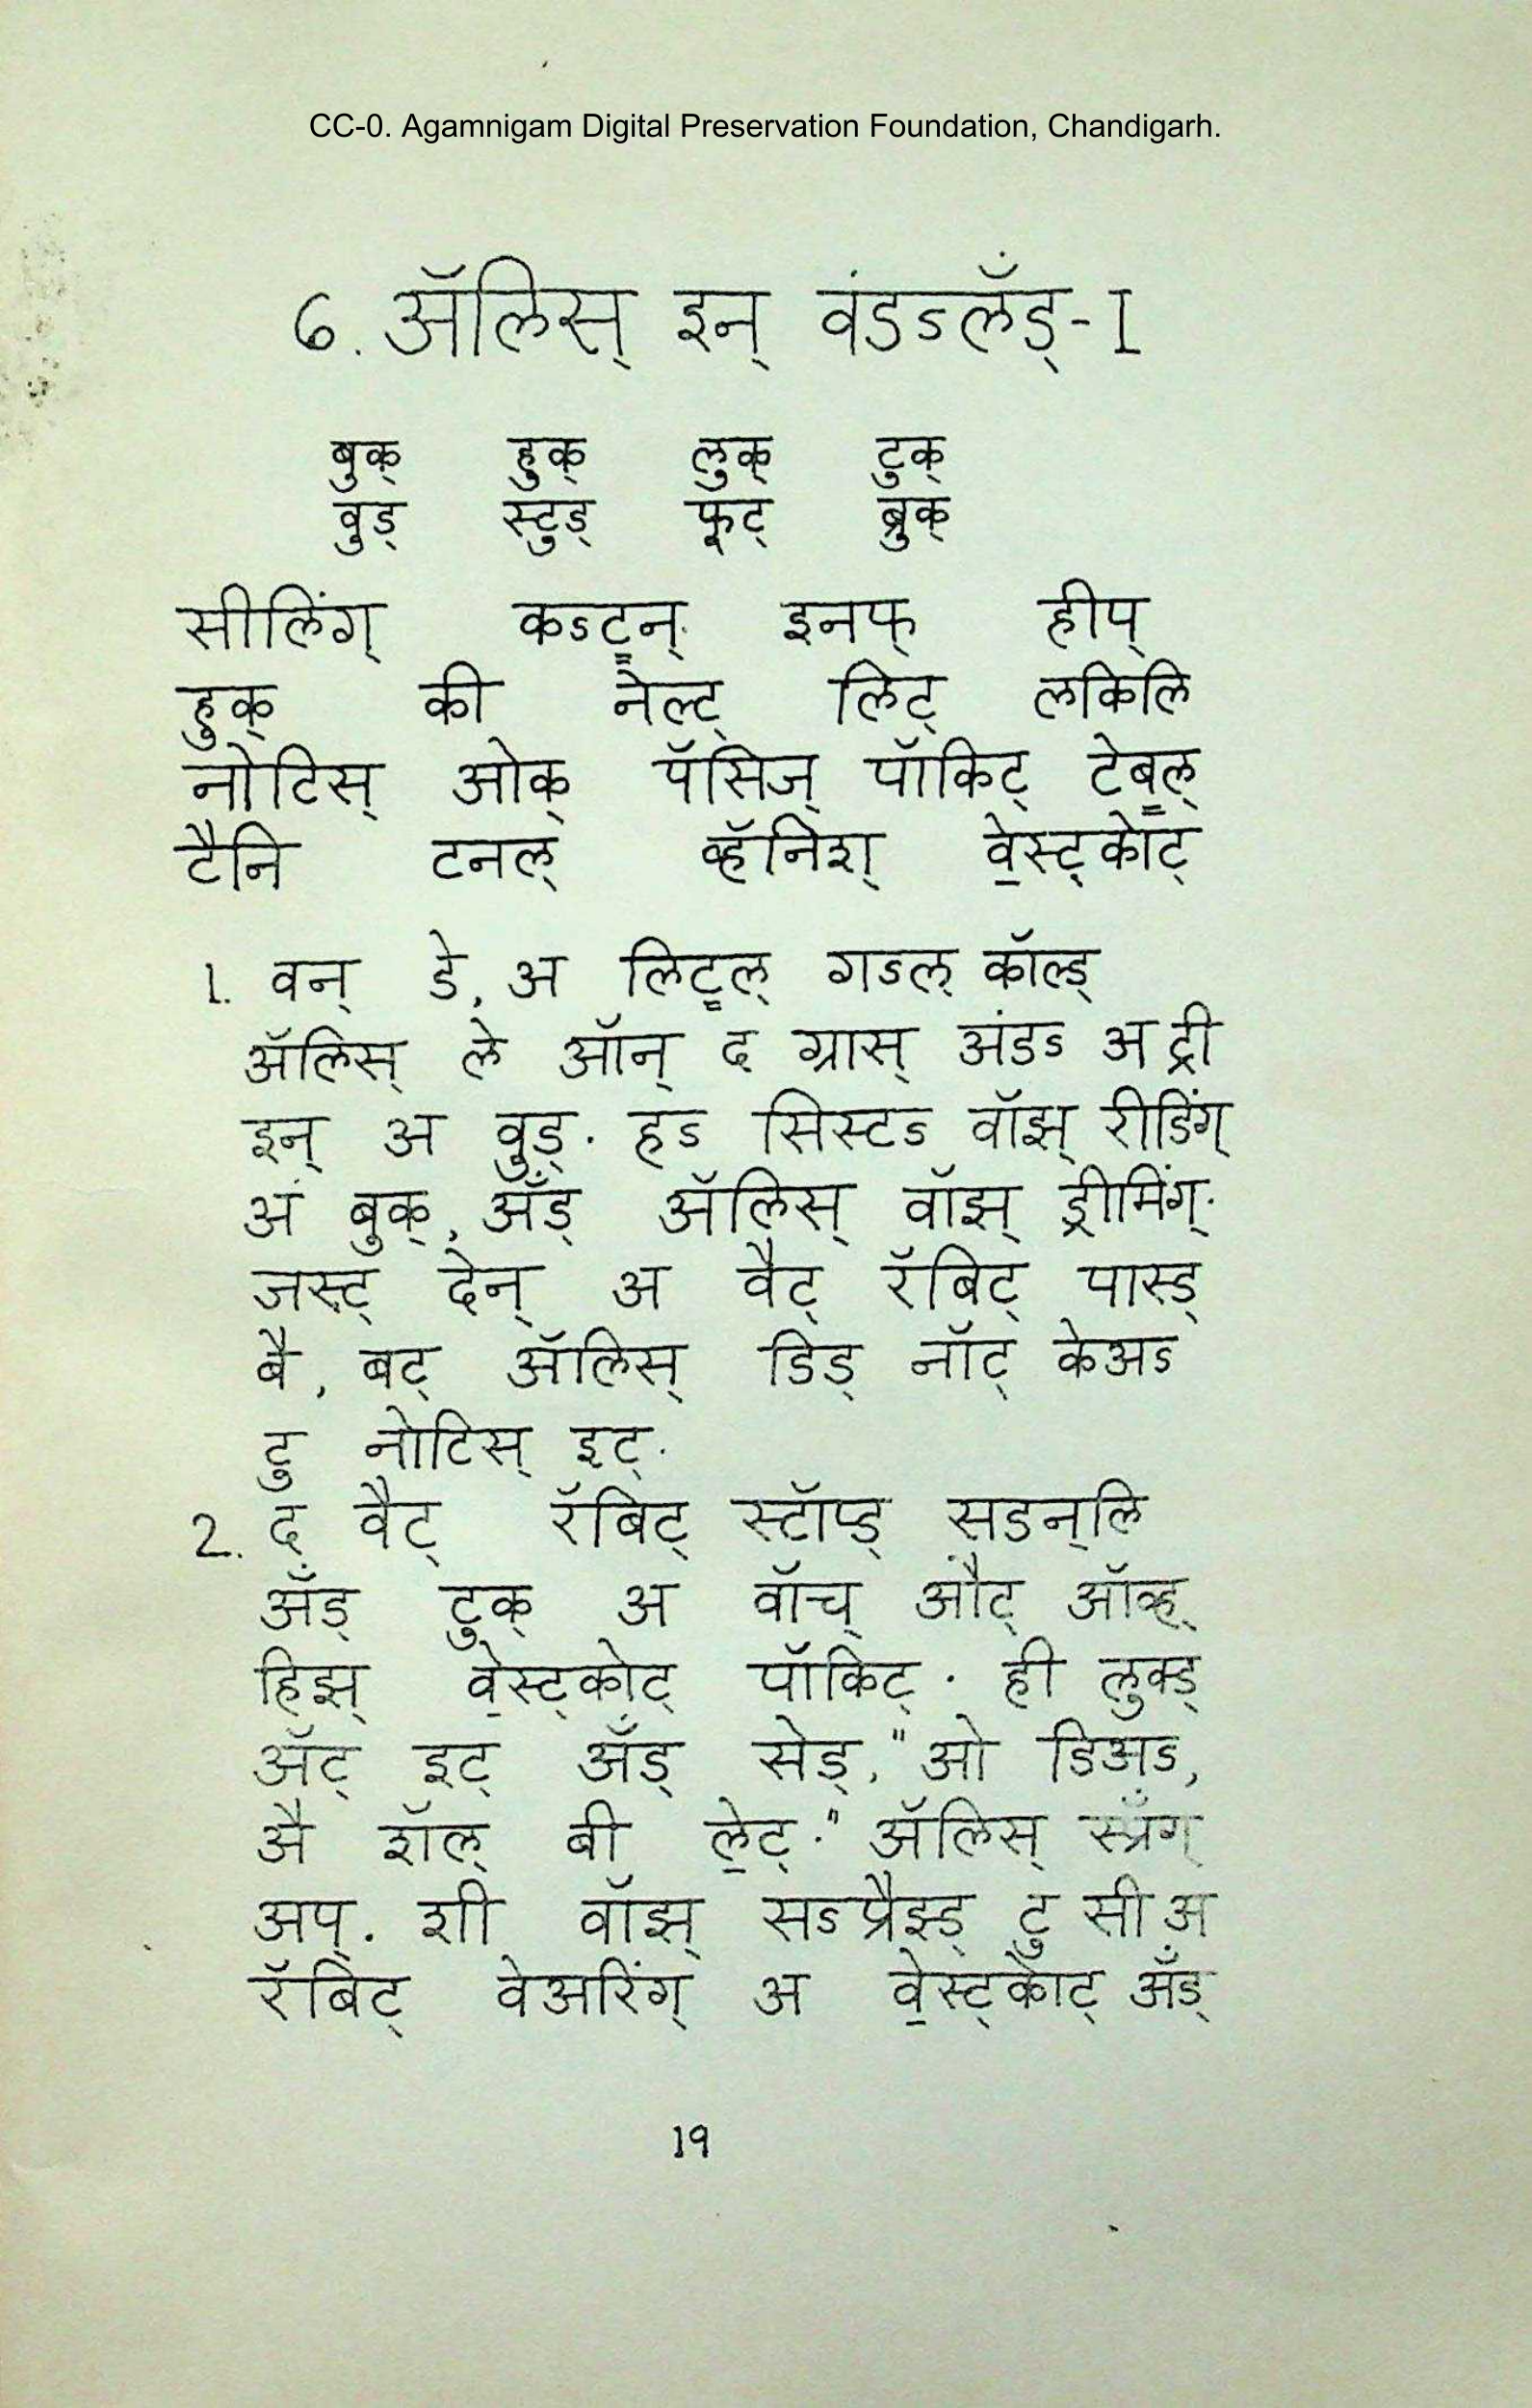 CC-0. Agamnigam Digital Preservation Foundation, Chandigarh.
6. ॲलिस् इन् वंडऽलॅंड्-I
बुक् हुक् लुक् टुक्
वुड् स्टुड् फुट् ब्रुक्
सीलिंग् कऽट्न्. इनफ् हीप्
हुक् की नेल्ट् लिट् लकिलि
नोटिस् ओक् पॅसिज् पॉकिट् टेब्ल्
टैनि टनल् व्हॅनिश् वे॒स्ट्कोट्
1. वन् डे, अ लिट्ल् गऽल् कॉल्ड्
ॲलिस् ले ऑन् द ग्रास् अंडऽ अ ट्री
इन् अ वुड्. हऽ सिस्टऽ वॉझ् रीडिंग्
अ बुक्, ॲंड् ॲलिस् वॉझ् ड्रीमिंग्.
जस्ट् देन् अ वैट् रॅबिट् पास्ड्
बै, बट् ॲलिस् डिड् नॉट् केअऽ
टु नोटिस् इट्.
2. द वैट् रॅबिट् स्टॉप्ड् सडन्लि
ॲंड् टुक् अ वॉच् औट् ऑव्ह्
हिझ् वे॒स्ट्कोट् पॉकिट्. ही लुक्ड्
ॲट् इट् ॲंड् सेड्, "ओ डिअऽ,
अै शॅल् बी ले॒ट्." ॲलिस् स्प्रॅंग्
अप्. शी वॉझ् सऽप्रैझ्ड् टु सी अ
रॅबिट् वेअरिंग् अ वे॒स्ट्कोट् ॲंड्
19